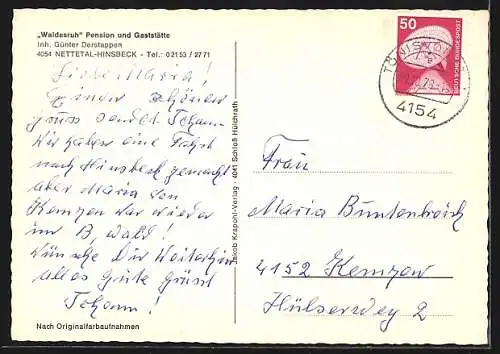 „Waldesruh" Pension und Gaststätte
Inh. Günter Derstappen
4054 NETTETAL-HINSBECK - Tel.: 02153 / 2771
Liebe Maria!
Einen schönen
Gruss sendet Johann
Wir haben eine Fahrt
nach Hinsbeck gemacht
aber Maria von
Kempen war wieder
im B. Wald!
wünsche Dir Weiterhin
alles Gute Grüsst
Johann!
Nach Originalfarbaufnahmen
Jacob Krapohl-Verlag · 4041 Schloß Hülchrath
50
DEUTSCHE BUNDESPOST
4154
Frau
Maria Buntenbroich
4152 Kempen
Hülserweg 2